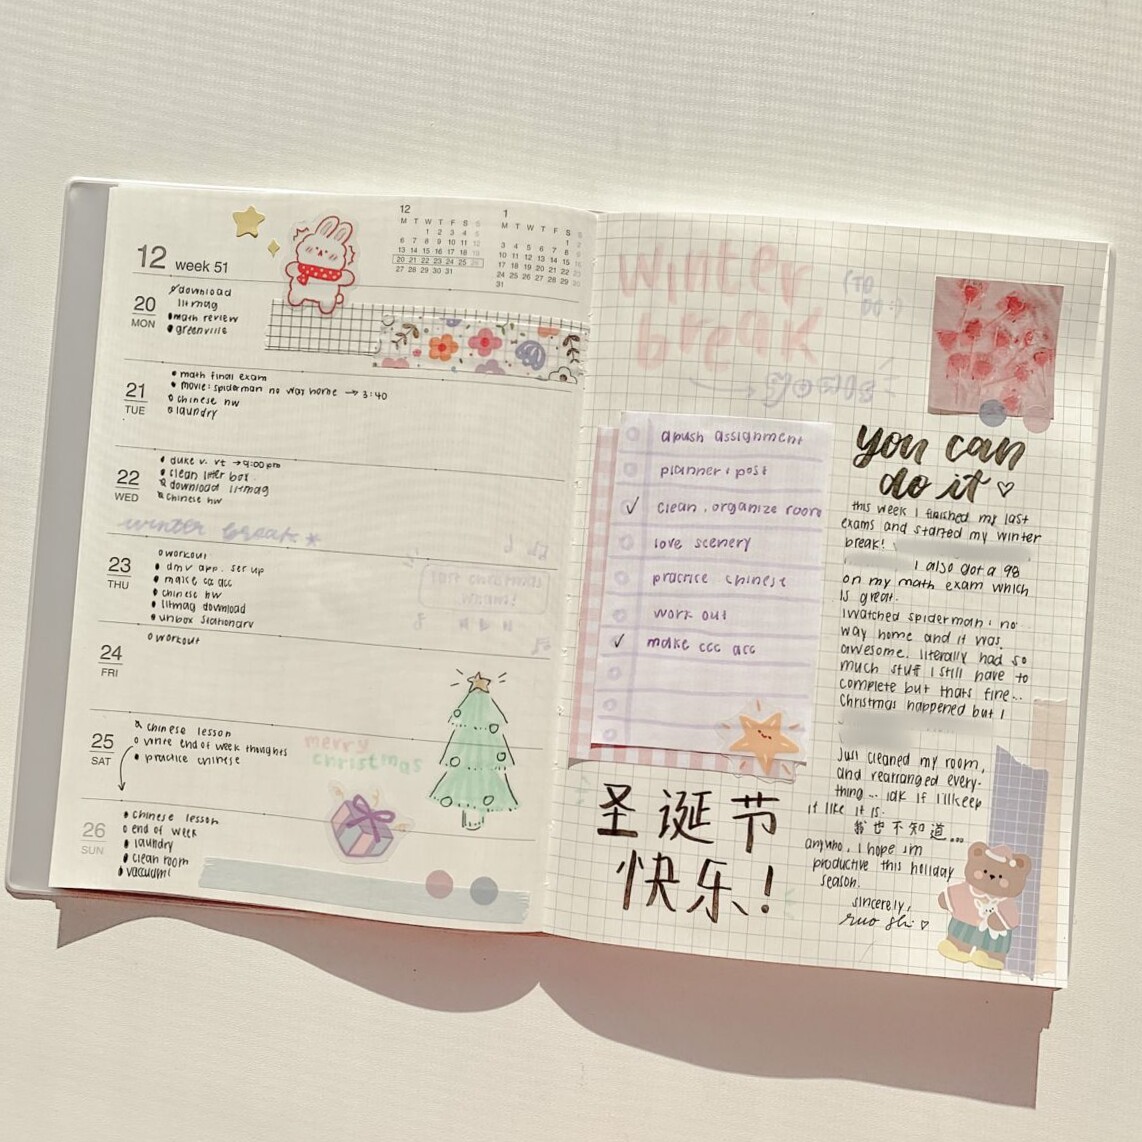 12 week 51
12
M T W T F S S
1 2 3 4 5
6 7 8 9 10 11 12
13 14 15 16 17 18 19
20 21 22 23 24 25 26
27 28 29 30 31
1
M T W T F S S
1 2
3 4 5 6 7 8 9
10 11 12 13 14 15 16
17 18 19 20 21 22 23
24 25 26 27 28 29 30
31
20
MON
download
litmag
math review
greenville
21
TUE
math final exam
movie: spiderman no way home → 3:40
chinese hw
laundry
22
WED
duke v. vt → 9:00 pm
clean litter box
download litmag
chinese hw
winter break *
23
THU
workout
dmv app. set up
make cc acc
chinese hw
litmag download
unbox stationary
24
FRI
workout
25
SAT
chinese lesson
write end of week thoughts
practice chinese
merry
christmas
26
SUN
chinese lesson
end of week
laundry
clean room
vacuum!
winter
break
(TO
DO:)
→ goals
apush assignment
planner: post
✓ clean, organize room
love scenery
practice chinese
work out
✓ make ccc acc
圣诞节
快乐!
you can
do it ♡
this week I finished my last
exams and started my winter
break!
I also got a 98
on my math exam which
is great.
I watched spiderman: no
way home and it was
awesome. literally had so
much stuff I still have to
complete but thats fine...
Christmas happened but I
Just cleaned my room,
and rearranged every-
thing... idk if i'll keep
it like it is.
我也不知道...
anywho, I hope im
productive this holiday
season.
sincerely,
ruo shi ♡